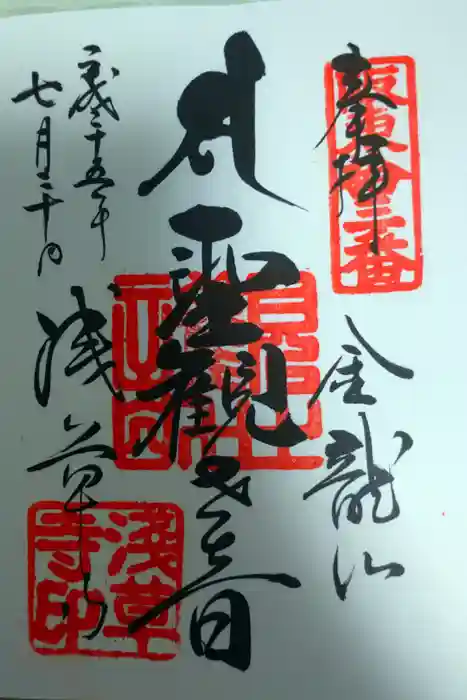 奉拝
坂東拾三番
金龍山
聖観世音
浅草寺
平成二十五年
七月二十日
浅草
寺印